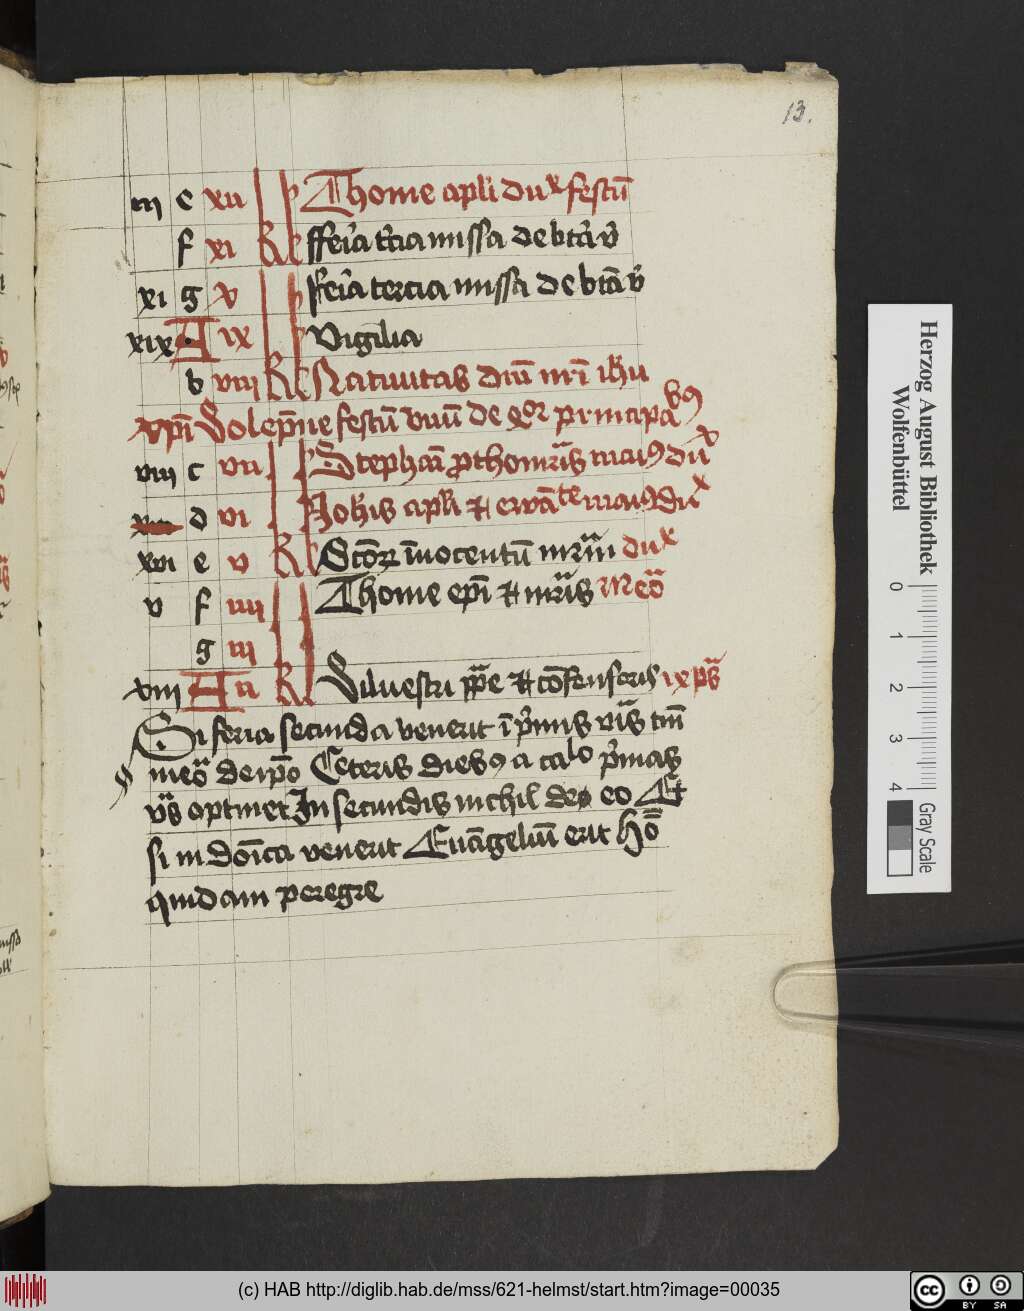 13.
iii e xii kl Thome apli dux festū
f xi kl ffeīa t'cia missa de btā v'
xi g x kl feīa tercia missa de btā v'
xix A ix kl Vigilia
b viii kl Natiuitas dni nrī ihū
xpī Solēpne festū vnū de qr principabꝫ
viii c vii kl Stephani maiꝰ dux
d vi kl Johīs apli et maiꝰ dux
xvi e v kl Scōꝝ īnocentū mrm dux
v f iiii kl Thome epī et mrīs Meō
g iii kl
xiii A ii kl Siluestri ppe et cōfessoris ix ps
Si feria secunda venerit ī prīmis
meō de ipo Ceteris diebꝰ a primas
vs optinet In secundis nichil de eo Et
si in donīca venerit Euāgeliū erit Hō
quidam peregre
Herzog August Bibliothek
Wolfenbüttel
0 1 2 3 4
Gray Scale
(c) HAB http://diglib.hab.de/mss/621-helmst/start.htm?image=00035
cc BY SA